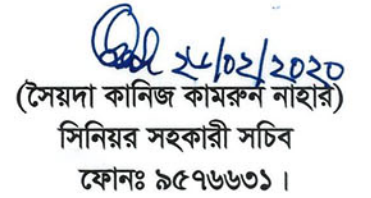 ২৮/০২/২০২০
(সৈয়দা কানিজ কামরুন নাহার)
সিনিয়র সহকারী সচিব
ফোনঃ ৯৫৭৬৬৩১।